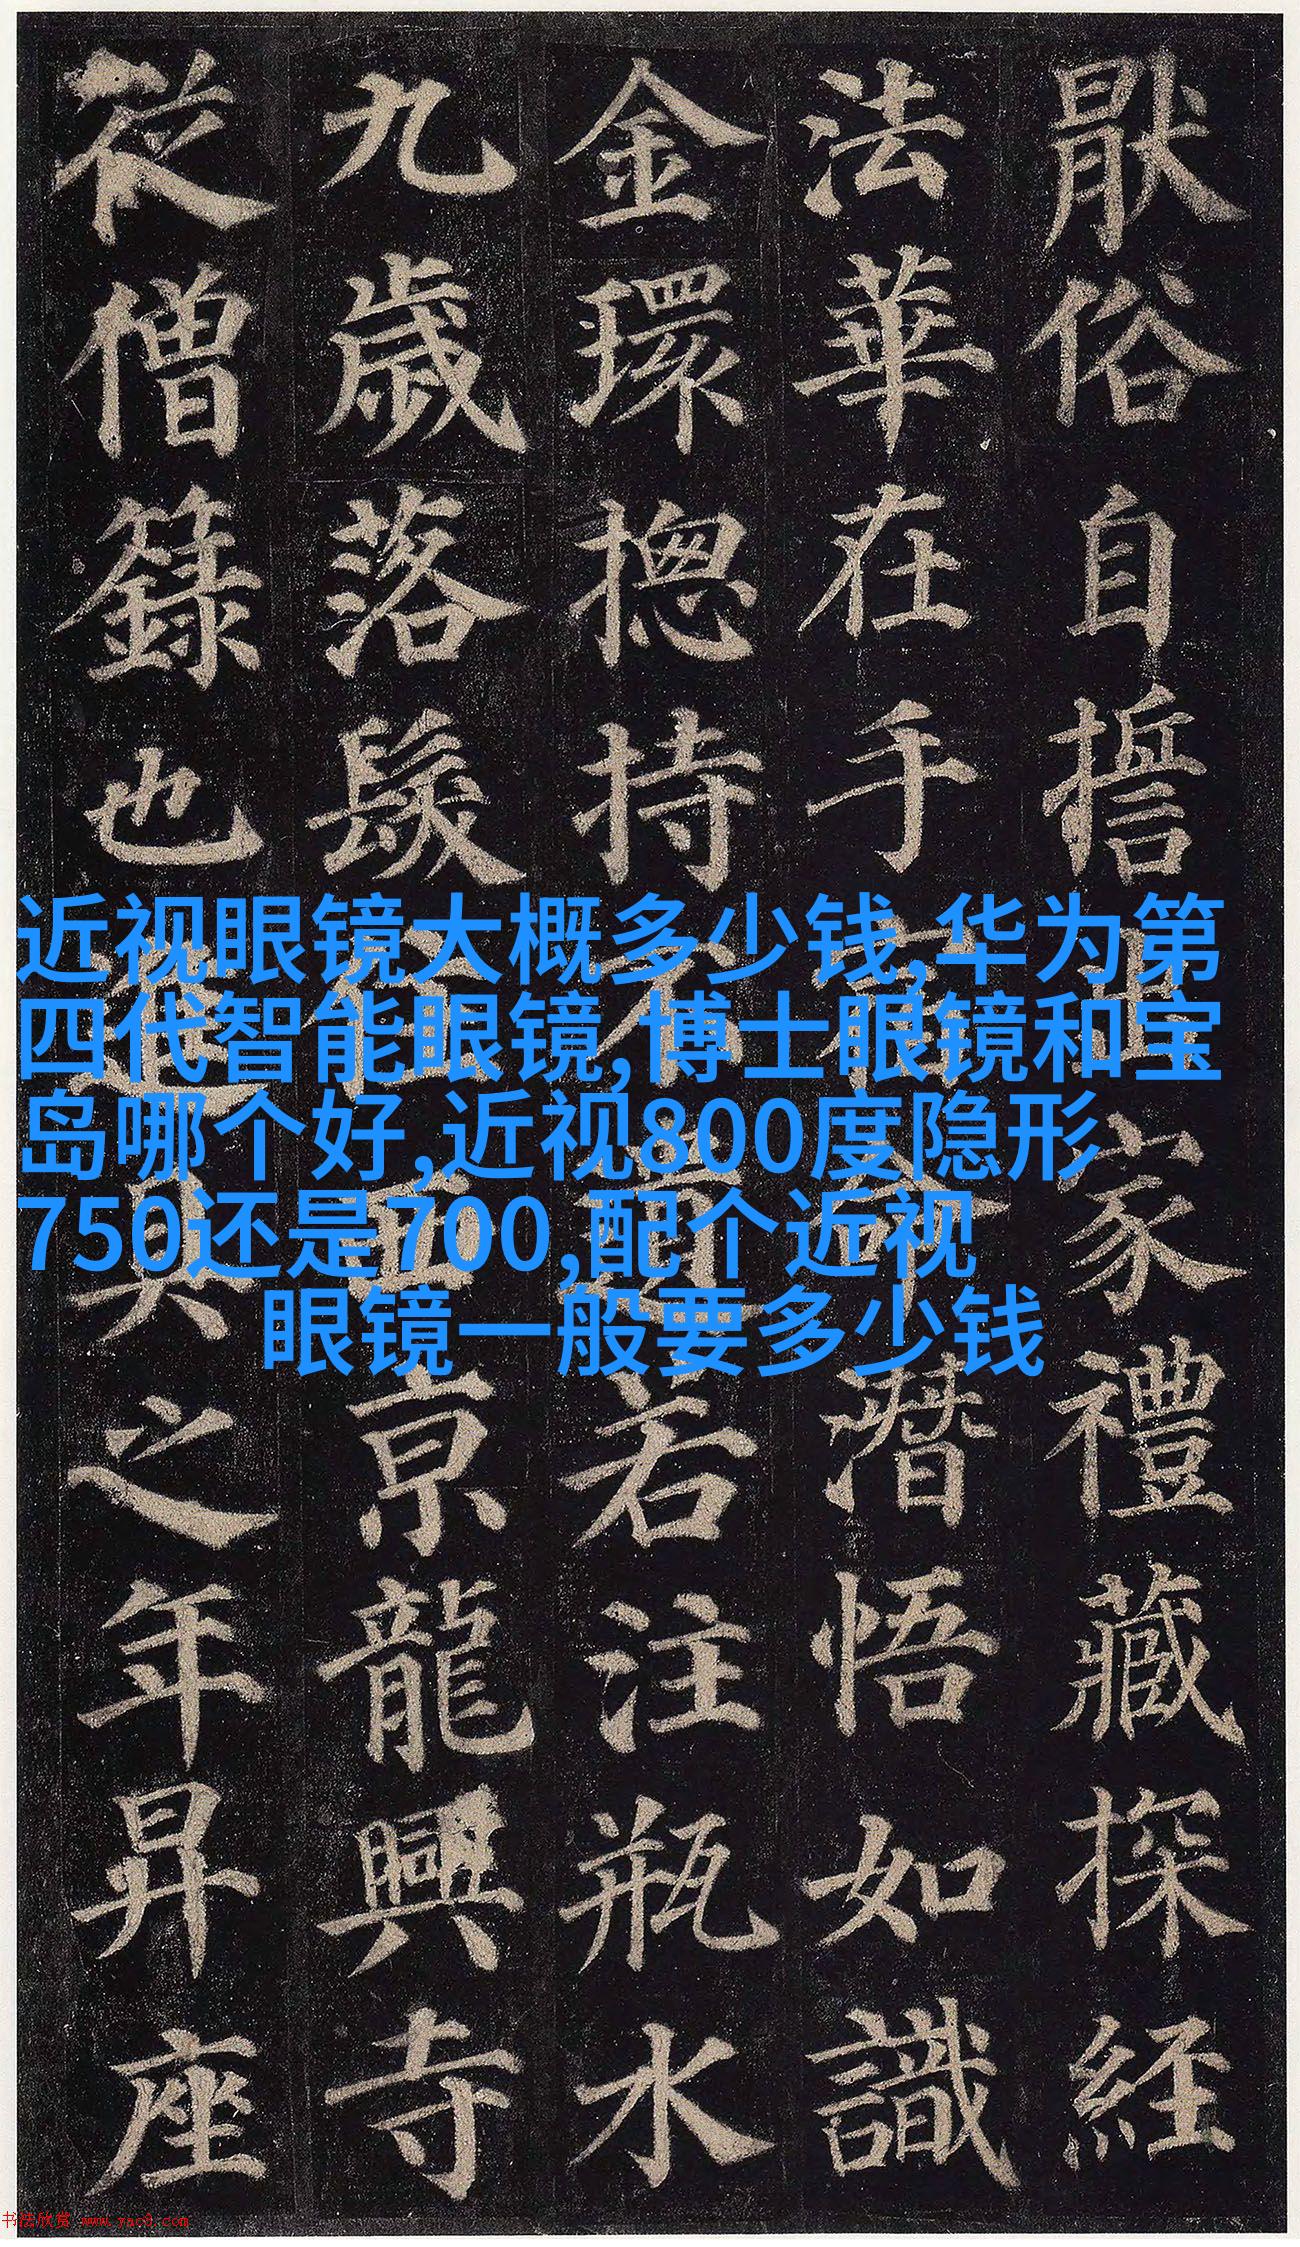 猒俗自誓出家禮藏探經
法華在手宿命潛悟如識
金環揔持不遺若注瓶水
九歲落髮住西京龍興寺
從僧籙也進具之年昇座
近视眼镜大概多少钱,华为第
四代智能眼镜,博士眼镜和宝
岛哪个好,近视800度隐形
750还是700,配个近视
眼镜一般要多少钱
书法欣赏 www.yac8.com